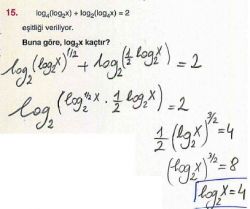 15. log₄(log₂x) + log₂(log₄x) = 2
eşitliği veriliyor.
Buna göre, log₂x kaçtır?
log₂(log₂x)^(1/2) + log₂(1/2 log₂x) = 2
log₂(log₂^(1/2)x · 1/2 log₂x) = 2
1/2 (log₂x)^(3/2) = 4
(log₂x)^(3/2) = 8
log₂x = 4